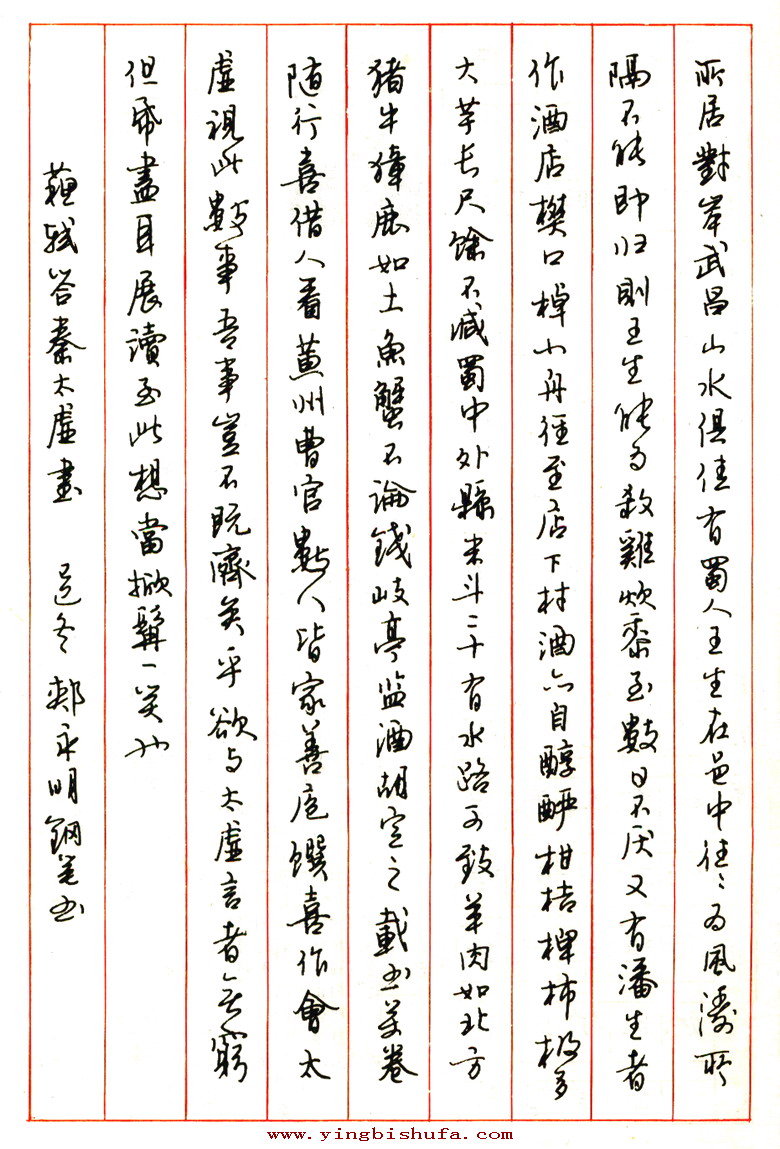 所居對岸武昌山水俱佳有蜀人王生在邑中往々为風濤所
隔不能即归則王生能为殺雞炊黍至數日不厌又有潘生者
作酒店樊口棹小舟徑至店下村酒亦自醇酽柑桔椑柿极多
大芋长尺馀不减蜀中外縣米斗二十有水路可致羊肉如北方
猪牛獐鹿如土魚蟹不論錢岐亭监酒胡定之載书万卷
随行喜借人看黄州曹官數人皆家善庖饌喜作會太
虚視此數事吾事豈不既济矣乎欲与太虚言者无窮
但帋盡耳展讀至此想當掀髯一笑也
蘇轼答秦太虚書 郏永明鋼笔书
www.yingbishufa.com